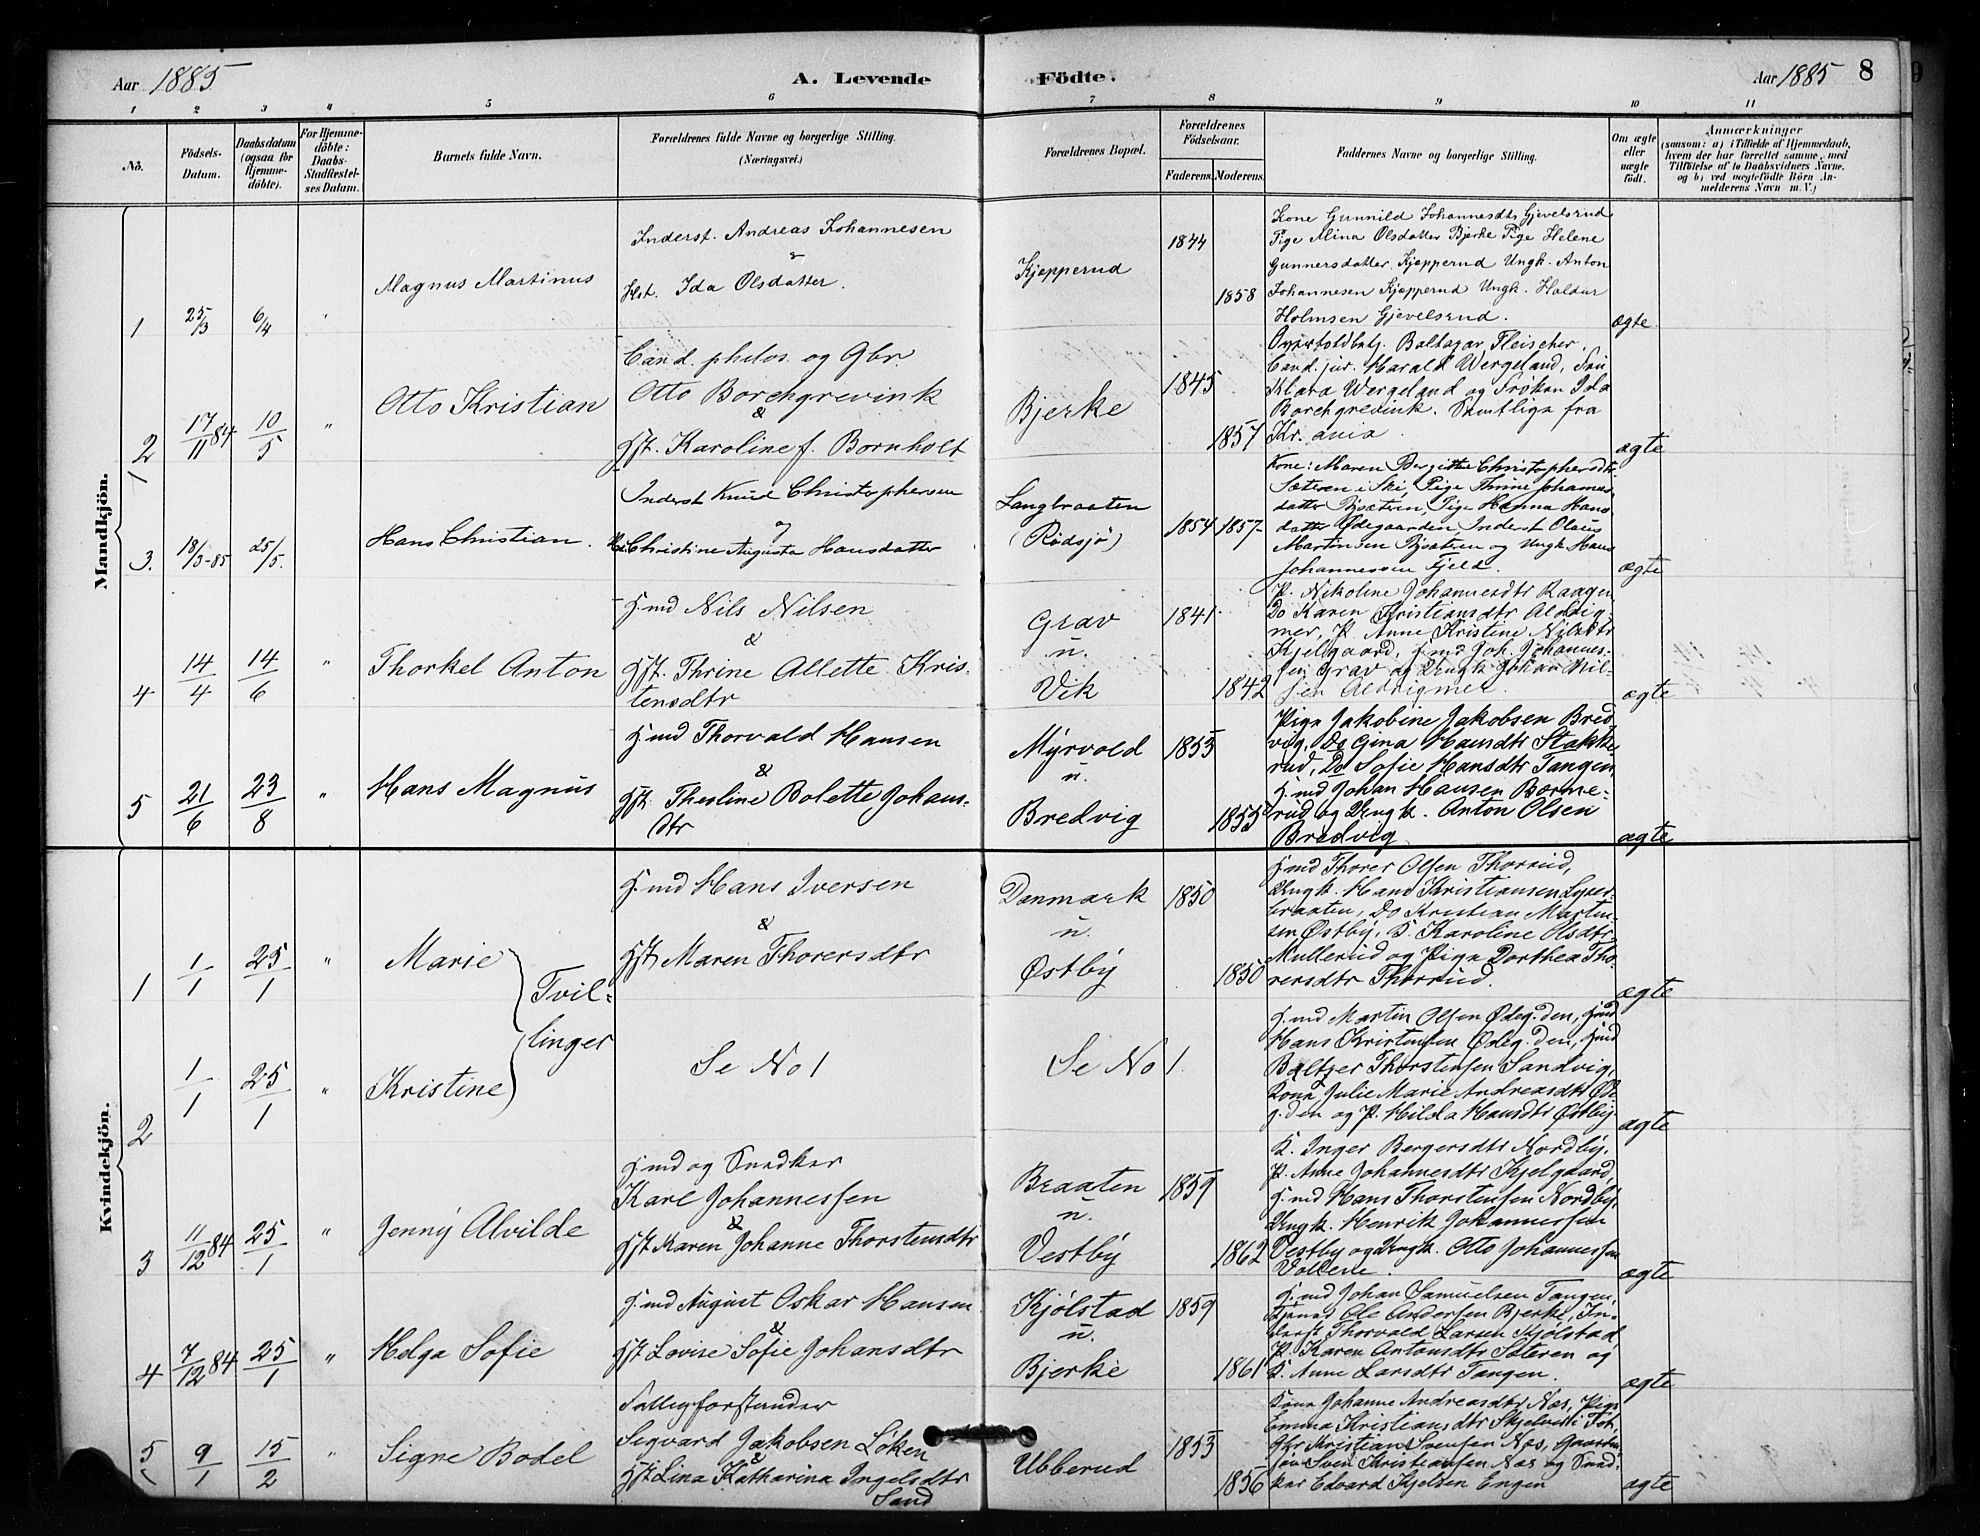 Aar 1885 A. Levende Födte. Aar 1885 8
1 2 3 4 5 6 7 8 9 10 11
No.
Födsels-
Datum.
Daabsdatum
(ogsaa for
Hjemme-
döbte).
For Hjemme-
döbte:
Daabs-
Stadfæstel-
ses Datum.
Barnets fulde Navn.
Forældrenes fulde Navne og borgerlige Stilling.
(Næringsvei.)
Forældrenes Bopæl.
Forældrenes
Födselsaar.
Faderens. Moderens.
Faddernes Navne og borgerlige Stilling.
Om ægte
eller
uægte
födt.
Anmærkninger
(saasom: a) i Tilfælde af Hjemmedaab,
hvem der har forrettet samme, med
Tilföielse af to Daabsvidners Navne,
og b) ved uægtefödte Börn An-
melderens Navn m. V.)
Mandkjön.
1 25/3 6/4
Magnus Martinus
Inderst. Andreas Johannesen
&
Hst. Ida Olsdatter.
Kjøpperud
1844
1858
Kone Gunnild Johannesdtr Gjevelsrud
Pige Alina Olsdatter Bjerke Pige Helene
Gunnersdatter Kjøpperud Ungk. Anton
Johannesen Kjøpperud Ungk. Haldur
Holmsen Gjevelsrud.
ægte
2 17/11 84 10/5 "
Otto Kristian
Cand. philos. og Gbr.
Otto Borchgrevink
&
Hst. Karoline f. Bornholt
Bjerke
1845
1857
Overtoldbetj. Baltazar Fleischer,
Cand. jur. Harald Wergeland, Fru
Klara Wergeland og Frøken Ida
Borchgrevink. Samtlige fra
Kr.ania.
ægte
3. 18/3-85 25/5.
Hans Christian.
Inderst Knud Christophersen
og
Christine Augusta Hansdatter
Langbraaten
(Rødsjø)
1854 1857
Kone: Maren Bergitthe Christophersdtr
Sæteren i Ski, Pige Thrine Johannes
datter Bjsæteren, Pige Hanna Hans
datter Ødegaarden Inderst Olaus
Martinsen Bjsæteren og Ungk Hans
Johannessen Fjeld.
ægte
4 14/4 14/6 "
Thorkel Anton
Hmd Nils Nilsen
&
Hst. Thrine Allette Kris-
tensdtr
Grav
u.
Vik
1841
1842
P. Nikoline Johannesdtr Raagen
Do Karen Kristiansdtr Aldrig-
mer, P. Anne Kristine Nilsdtr
Kjelgaard, Hmd Joh. Johannes-
sen Grav og Ungk Johan Nil-
sen Aldrigmer.
ægte
5 21/6 23/8 "
Hans Magnus
Hmd Thorvald Hansen
&
Hst. Theoline Bolette Johans-
dtr
Myrvold
u.
Bredvig
1853
1855
Pige Jakobine Jakobsen Bred
vig, Do Gina Hansdtr Stokke
rud, Do Sofie Hansdtr Tangen
Hmd Johan Hansen Borme-
rud og Ungk. Anton Olsen
Bredvig
ægte
Kvindekjön.
1 1/1 25/1 "
Marie
Tvil-
linger
Hmd Hans Iversen
&
Hst Maren Thorersdtr
Danmark
u.
Østby
1850
1850
Hmd Thorer Olsen Thorrud,
Ungk. Hans Kristiansen Lyser-
braaten, Do Kristian Martin-
sen Østby, K. Karoline Olsdtr
Mullerud og Pige Dorthea Tho-
rersdtr Thorrud.
ægte
2 1/1 25/1 "
Kristine
Se No 1
Se No 1.
Hmd Martin Olsen Ødeg.den, Hmd
Hans Kristensen Ødeg.den, Hmd
Baltzer Thorstensen Sandvig,
Kone Julie Marie Andreasdtr Øde
g.den og P. Hilda Hansdtr Østby
ægte
3 11/12 84 25/1 "
Jenny Alvilde
Hmd og Snedker
Karl Johannessen
&
Hst Karen Johanne Thorstensdtr
Braaten
u.
Vestby
1859
1862
K. Inger Bergersdtr Nordby.
P. Anne Johannesdtr Kjelgaard,
Hmd Hans Thorstensen Nordby,
Ungk. Henrik Johannessen
Vestby og Ungk. Otto Johannessen
Vollene.
ægte
4 7/12 84 25/1 "
Helga Sofie
Hmd August Oskar Hansen
&
Hst Lovise Sofie Johansdtr
Kjølstad
u.
Bjerke
1859
1861
Hmd Johan Samuelsen Tangen,
Tjener Ole Andersen Bjerke, In-
derst Thorvald Larsen Kjølstad
P. Karen Antonsdtr Sæteren og
K. Anne Larsdtr Tangen.
ægte
5 9/1 15/2 "
Signe Bodel
Fattigforstander
Segvard Jakobsen Løken
&
Hst Lina Katharina Ingelsdtr
Sand
Ubberud
1853
1856
Kone Johanne Andreasdtr Næs, Pige
Emma Kristiansdtr Skjelver i Fet
Gbr Kristian Svensen Næs, Gaardm.
søn Sven Kristiansen Næs og Sned-
ker Edvard Kjelsen Engen
ægte